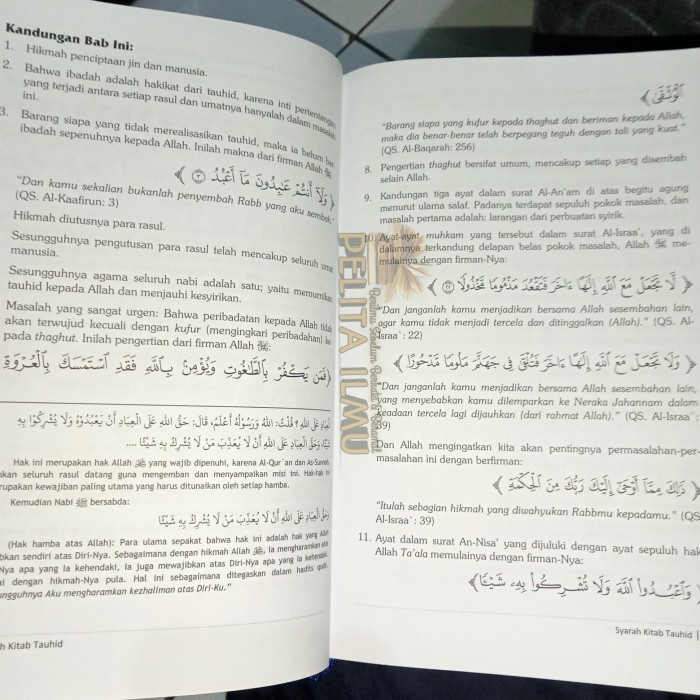 Kandungan Bab Ini:
1. Hikmah penciptaan jin dan manusia.
2. Bahwa ibadah adalah hakikat dari tauhid, karena inti pertentangan
yang terjadi antara setiap rasul dan umatnya hanyalah dalam masalah
ini.
3. Barang siapa yang tidak merealisasikan tauhid, maka ia belum ber-
ibadah sepenuhnya kepada Allah. Inilah makna dari firman Allah ﷻ:
﴿ وَلَآ أَنتُمْ عَٰبِدُونَ مَآ أَعْبُدُ ٣ ﴾
"Dan kamu sekalian bukanlah penyembah Rabb yang aku sembah."
(QS. Al-Kaafirun: 3)
Hikmah diutusnya para rasul.
Sesungguhnya pengutusan para rasul telah mencakup seluruh umat
manusia.
Sesungguhnya agama seluruh nabi adalah satu; yaitu memurnikan
tauhid kepada Allah dan menjauhi kesyirikan.
Masalah yang sangat urgen: Bahwa peribadatan kepada Allah tidak
akan terwujud kecuali dengan kufur (mengingkari peribadahan) ke-
pada thaghut. Inilah pengertian dari firman Allah ﷻ:
﴿ فَمَن يَكْفُرْ بِٱلطَّٰغُوتِ وَيُؤْمِنۢ بِٱللَّهِ فَقَدِ ٱسْتَمْسَكَ بِٱلْعُرْوَةِ
العِبَادِ عَلَى اللهِ؟ قُلْتُ: اللهُ وَرَسُوْلُهُ أَعْلَمُ، قَالَ: حَقُّ اللهِ عَلَى الْعِبَادِ أَنْ يَعْبُدُوْهُ وَلَا يُشْرِكُوْا بِهِ
شَيْئًا وَحَقُّ الْعِبَادِ عَلَى اللهِ أَنْ لَا يُعَذِّبَ مَنْ لَا يُشْرِكُ بِهِ شَيْئًا ....
Hak ini merupakan hak Allah ﷻ yang wajib dipenuhi, karena Al-Qur`an dan As-Sunnah
kan seluruh rasul datang guna mengemban dan menyampaikan misi ini. Hak-hak ini
rupakan kewajiban paling utama yang harus ditunaikan oleh setiap hamba.
Kemudian Nabi ﷺ bersabda:
وَحَقُّ الْعِبَادِ عَلَى اللهِ أَنْ لَا يُعَذِّبَ مَنْ لَا يُشْرِكُ بِهِ شَيْئًا
(Hak hamba atas Allah): Para ulama sepakat bahwa hak ini adalah hak yang Allah
bkan sendiri atas Diri-Nya. Sebagaimana dengan hikmah Allah ﷻ, Ia mengharamkan atas
Nya apa yang Ia kehendaki, Ia juga mewajibkan atas Diri-Nya apa yang Ia kehendaki,
i dengan hikmah-Nya pula. Hal ini sebagaimana ditegaskan dalam hadits qudsi:
ungguhnya Aku mengharamkan kezhaliman atas Diri-Ku."
h Kitab Tauhid
ٱلْوُثْقَىٰ ﴾
"Barang siapa yang kufur kepada thaghut dan beriman kepada Allah,
maka dia benar-benar telah berpegang teguh dengan tali yang kuat."
(QS. Al-Baqarah: 256)
8. Pengertian thaghut bersifat umum, mencakup setiap yang disembah
selain Allah.
9. Kandungan tiga ayat dalam surat Al-An'am di atas begitu agung
menurut ulama salaf. Padanya terdapat sepuluh pokok masalah, dan
masalah pertama adalah: larangan dari perbuatan syirik.
10. Ayat-ayat muhkam yang tersebut dalam surat Al-Israa`, yang di
dalamnya terkandung delapan belas pokok masalah, Allah ﷻ me-
mulainya dengan firman-Nya:
﴿ لَّا تَجْعَلْ مَعَ ٱللَّهِ إِلَٰهًا ءَاخَرَ فَتَقْعُدَ مَذْمُومًا مَّخْذُولًا ٢٢ ﴾
"Dan janganlah kamu menjadikan bersama Allah sesembahan lain,
agar kamu tidak menjadi tercela dan ditinggalkan (Allah)." (QS. Al-
Israa`: 22)
﴿ وَلَا تَجْعَلْ مَعَ ٱللَّهِ إِلَٰهًا ءَاخَرَ فَتُلْقَىٰ فِى جَهَنَّمَ مَلُومًا مَّدْحُورًا ﴾
"Dan janganlah kamu menjadikan bersama Allah sesembahan lain,
yang menyebabkan kamu dilemparkan ke Neraka Jahannam dalam
keadaan tercela lagi dijauhkan (dari rahmat Allah)." (QS. Al-Israa`:
39)
Dan Allah mengingatkan kita akan pentingnya permasalahan-per-
masalahan ini dengan berfirman:
﴿ ذَٰلِكَ مِمَّآ أَوْحَىٰٓ إِلَيْكَ رَبُّكَ مِنَ ٱلْحِكْمَةِ ﴾
"Itulah sebagian hikmah yang diwahyukan Rabbmu kepadamu." (QS.
Al-Israa`: 39)
11. Ayat dalam surat An-Nisa' yang dijuluki dengan ayat sepuluh hak
Allah Ta'ala memulainya dengan firman-Nya:
﴿ وَٱعْبُدُوا۟ ٱللَّهَ وَلَا تُشْرِكُوا۟ بِهِۦ شَيْـًٔا ﴾
Syarah Kitab Tauhid |
PELITA ILMU
Berilmu Sebelum Berkata & Beramal